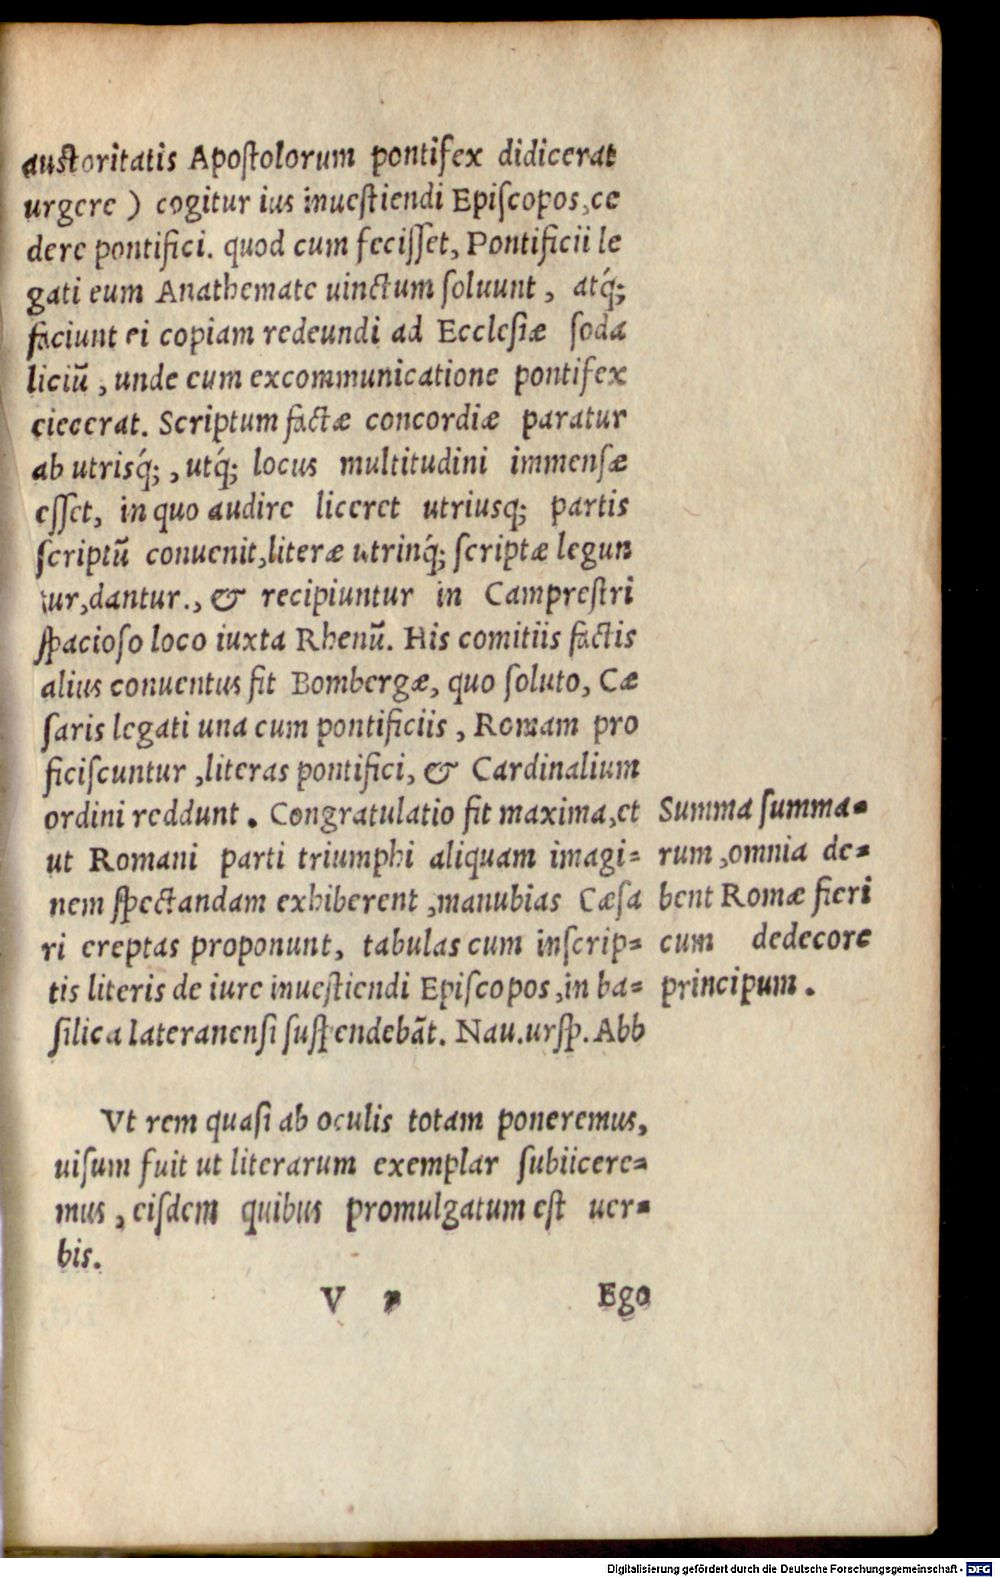 auctoritatis Apostolorum pontifex didicerat
urgere) cogitur ius inuestiendi Episcopos,ce
dere pontifici. quod cum fecisset, Pontificii le
gati eum Anathemate uinctum soluunt, atq́;
faciunt ei copiam redeundi ad Ecclesiæ soda
liciũ, unde cum excommunicatione pontifex
eiecerat. Scriptum factæ concordiæ paratur
ab utrisq́;, utq́; locus multitudini immensæ
esset, in quo audire liceret utriusq; partis
scriptũ conuenit,literæ utrinq́; scriptæ legun
tur,dantur., & recipiuntur in Camprestri
spacioso loco iuxta Rhenũ. His comitiis factis
alius conuentus fit Bombergæ, quo soluto, Cæ
saris legati una cum pontificiis, Romam pro
ficiscuntur,literas pontifici, & Cardinalium
ordini reddunt. Congratulatio fit maxima,et
ut Romani parti triumphi aliquam imagi-
nem spectandam exhiberent,manubias Cæsa
ri ereptas proponunt, tabulas cum inscrip-
tis literis de iure inuestiendi Episcopos,in ba-
silica lateranensi suspendebãt. Nau.ursp.Abb
Summa summa-
rum,omnia de-
bent Romæ fieri
cum dedecore
principum.
Vt rem quasi ab oculis totam poneremus,
uisum fuit ut literarum exemplar subiicere-
mus, eisdem quibus promulgatum est uer-
bis.
V
Ego
Digitalisierung gefördert durch die Deutsche Forschungsgemeinschaft - DFG